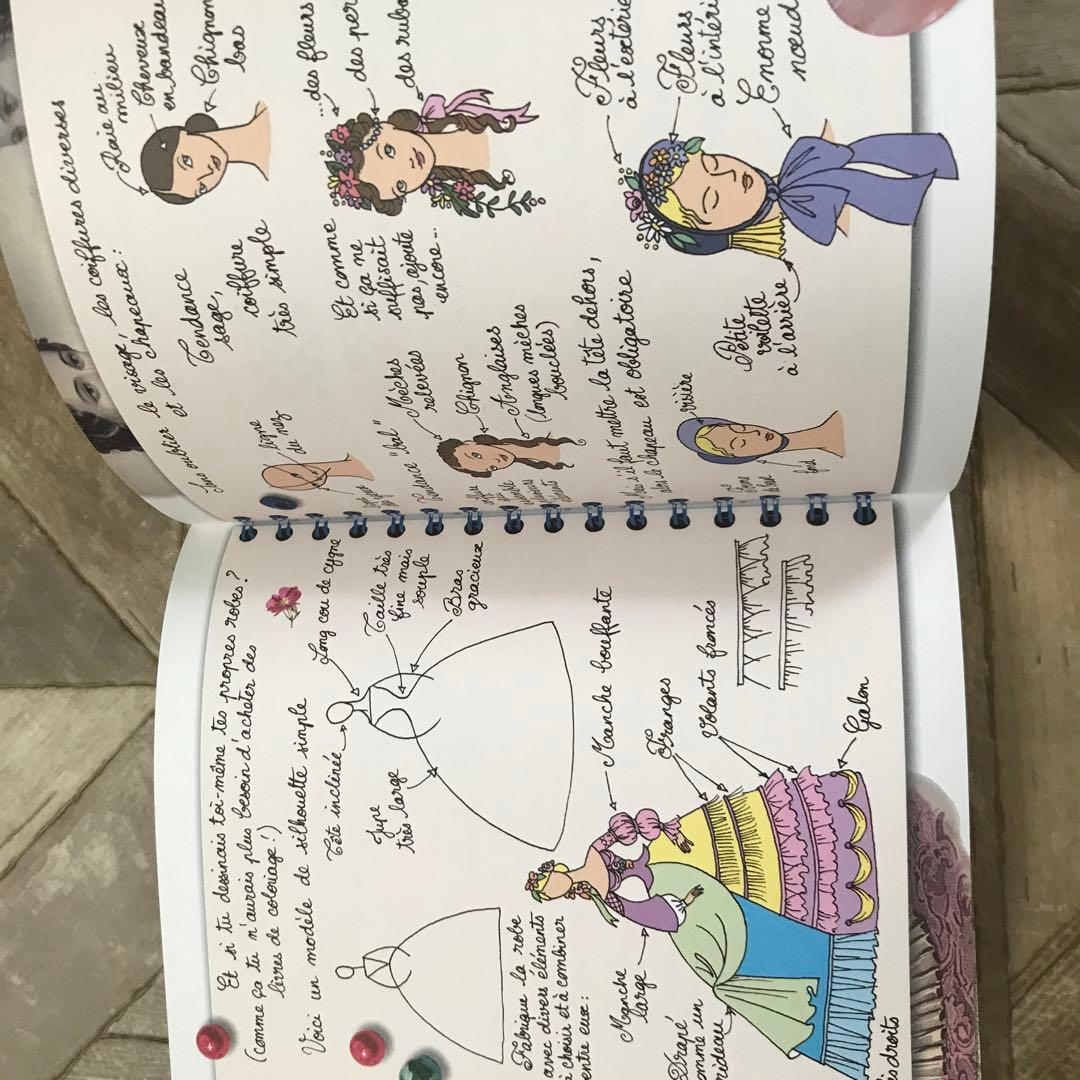 Et si tu dessinais toi-même tes propres robes?
(comme ça tu n'aurais plus besoin d'acheter des
livres de coloriage!)
Voici un modèle de silhouette simple
Long cou de cygne
Tête inclinée
Taille très
fine mais
souple
Bras
gracieux
Jupe
très large
Fabrique la robe
avec divers éléments
à choisir et à combiner
entre eux:
Manche bouffante
Manche
large
Franges
Volants froncés
Drapé
comme un
rideau
Galon
droits
Sans oublier le visage, les coiffures diverses
et les chapeaux:
Raie au
milieu
Cheveux
en bandeau
Chignon
bas
Tendance
sage,
coiffure
très simple
ligne
du nez
...des fleurs
des
Et comme
si ça ne
suffisait
pas, ajoute
encore...
Tendance "bal"
Mèches
relevées
Chignon
Anglaises
(longues mèches
bouclées)
s'il faut mettre la tête dehors,
le chapeau est obligatoire
Fleurs
Fleurs
Enorme
nœud
visière
Petite
voilette
à l'arrière